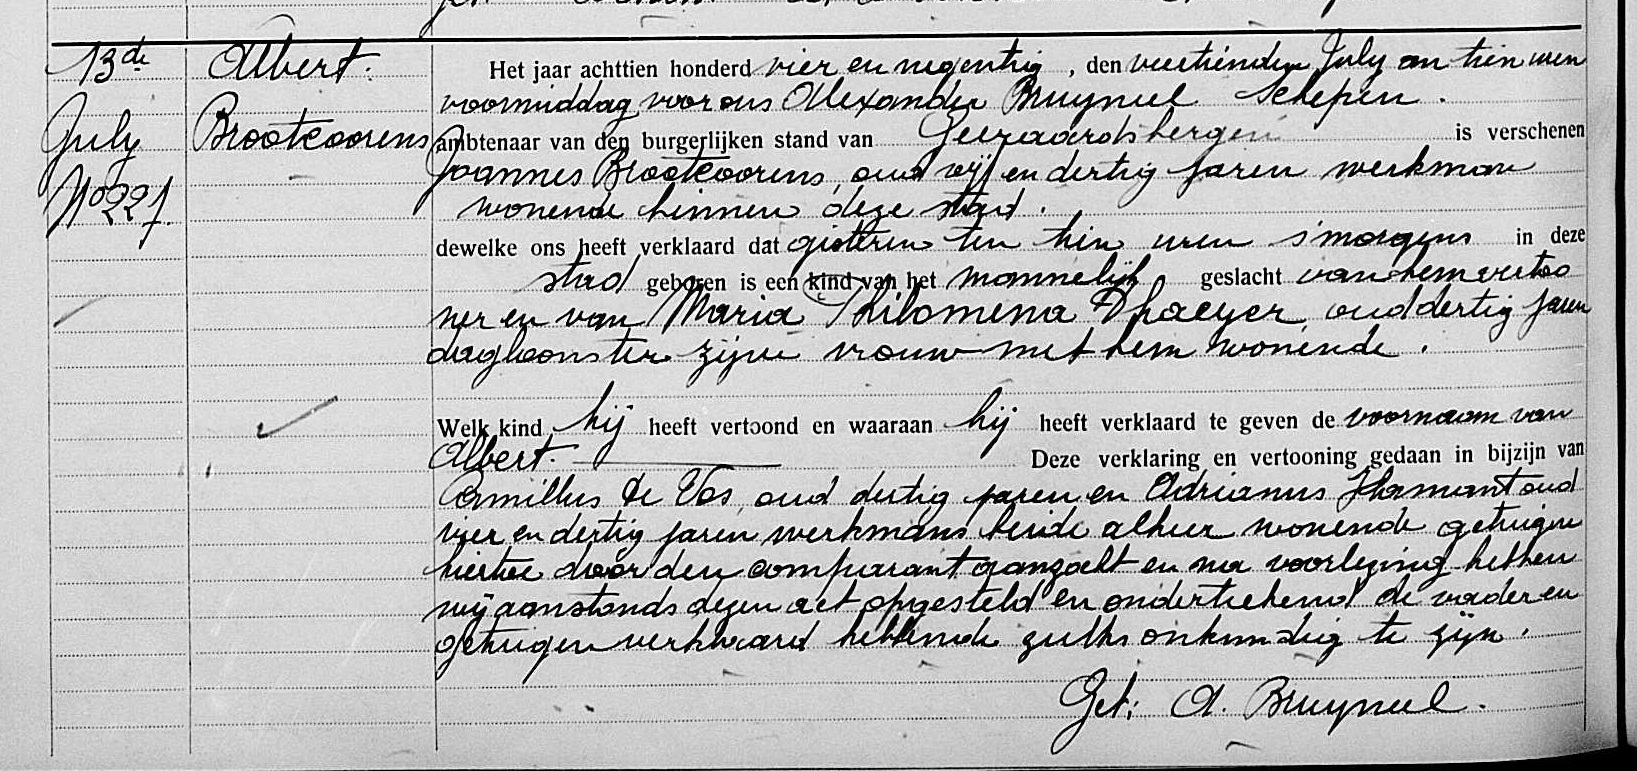 13de
July
No 227.
Albert.
Brootcoorens
Het jaar achttien honderd vier en negentig , den veertienden July om tien uren
voormiddag voor ons Alexander Bruyneel Schepen .
ambtenaar van den burgerlijken stand van Geeraardsbergen is verschenen
Joannes Brootcoorens, oud vijf en dertig jaren werkman
wonende binnen deze stad .
dewelke ons heeft verklaard dat gisteren ten tien uren s'morgens in deze
stad geboren is een kind van het mannelijk geslacht van hem vertoo
ner en van Maria Philomena Dhaeyer, oud dertig jaren
dagloonster zijne vrouw met hem wonende .
Welk kind hij heeft vertoond en waaraan hij heeft verklaard te geven de voornaam van
Albert. Deze verklaring en vertooning gedaan in bijzijn van
Camillus De Vos, oud dertig jaren en Adrianus Hamant oud
vier en dertig jaren werkmans beide alhier wonende getuigen
hiertoe door den comparant aanzocht en na voorlezing hebben
wij aanstonds dezen act opgesteld en onderteekend de vader en
getuigen verklaard hebbende zulks onkundig te zijn .
Get: A. Bruyneel .